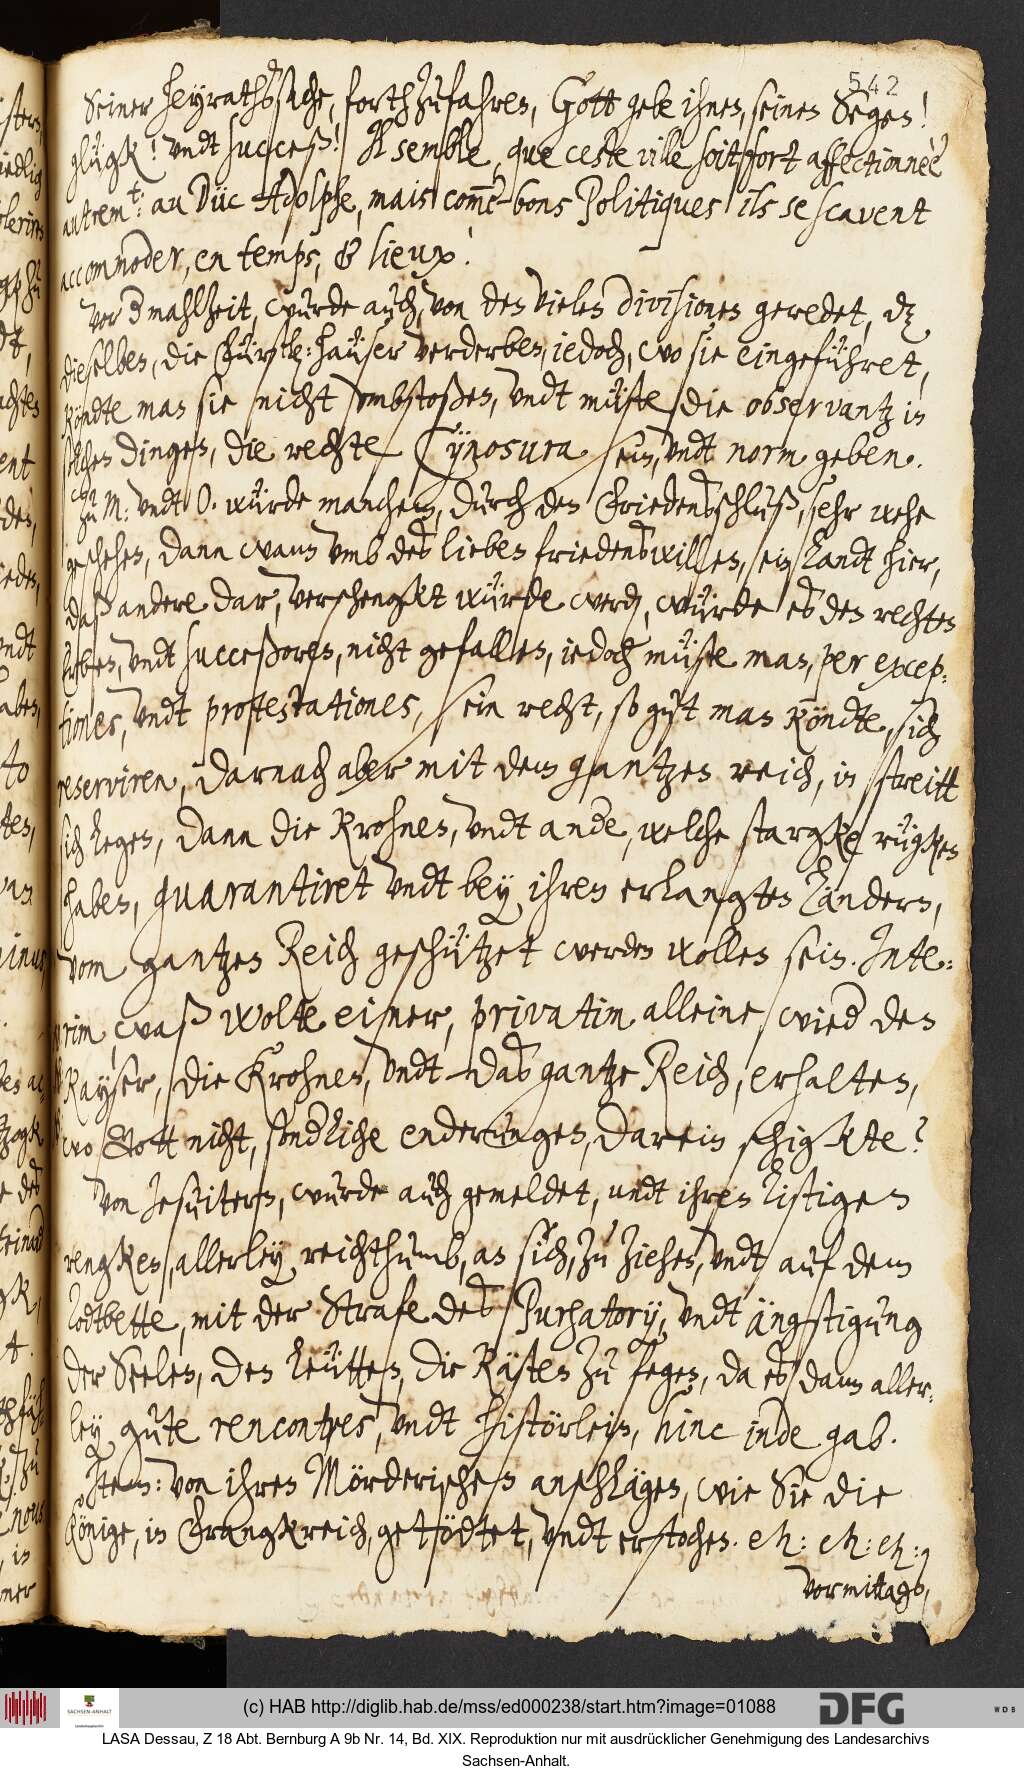 542
Seiner heyrathssache, forthzufahren, Gott gebe ihnen, seinen Segen!
glügk! undt succeß! Il semble, que ceste ville soit fort affectionnèe
autrem.t: au Düc Adolphe, mais com̄e bons Politiques ils se scavent
accommoder, en temps, & lieux!
Vor der mahlzeit, wurde auch, von den vielen divisionen geredet, dz
dieselben, die Fürstl: haüser verderben, iedoch, wo sie eingeführet,
köndte man sie nicht ümbstoßen, undt müste die observantz in
solchen dingen, die rechte Cynosura sein, undt norm geben.
Zu M: undt O. würde manchem, durch den Friedensschluß, sehr wehe
geschehen, dann wann umb des lieben friedens willen, sein Landt hier,
daß andere dar, verschengkt würde werden, würde es den rechten
Erben, undt successoren, nicht gefallen, iedoch müste man, per excep-
tiones, undt protestationes, sein recht, so gut man köndte, sich
reserviren, darnach aber mit dem gantzen reich, in streitt
sich legen, dann die Krohnen, undt andere, welche stargke rügken
haben, guarantiret undt bey ihren erlangten Ländern,
vom gantzen Reich geschützet werden wollen sein. Inte-
rim, waß wolte einer, privatim alleine, wieder den
Kayser, die Krohnen, undt das gantze Reich, erhalten,
wo Gott nicht, sonderliche enderungen, darein schigkte?
Von Jesuitern, wurde auch gemeldet, undt ihren listigen
rengken, allerley reichthumb, an sich, zu ziehen, undt auf dem
Todtbette, mit der Strafe des Purgatorij, undt ängstigung
der Seelen, den leütten, die Kasten zu fegen, da es dann aller-
ley gute rencontres, undt histörlein, hinc inde gab.
Item: von ihren Mörderischen anschlägen, wie Sie die
Könige, in Frangkreich, getödtet, undt erstochen. etc: etc: etc:
Vormittags,
(c) HAB http://diglib.hab.de/mss/ed000238/start.htm?image=01088
SACHSEN-ANHALT
DFG
WDB
LASA Dessau, Z 18 Abt. Bernburg A 9b Nr. 14, Bd. XIX. Reproduktion nur mit ausdrücklicher Genehmigung des Landesarchivs
Sachsen-Anhalt.